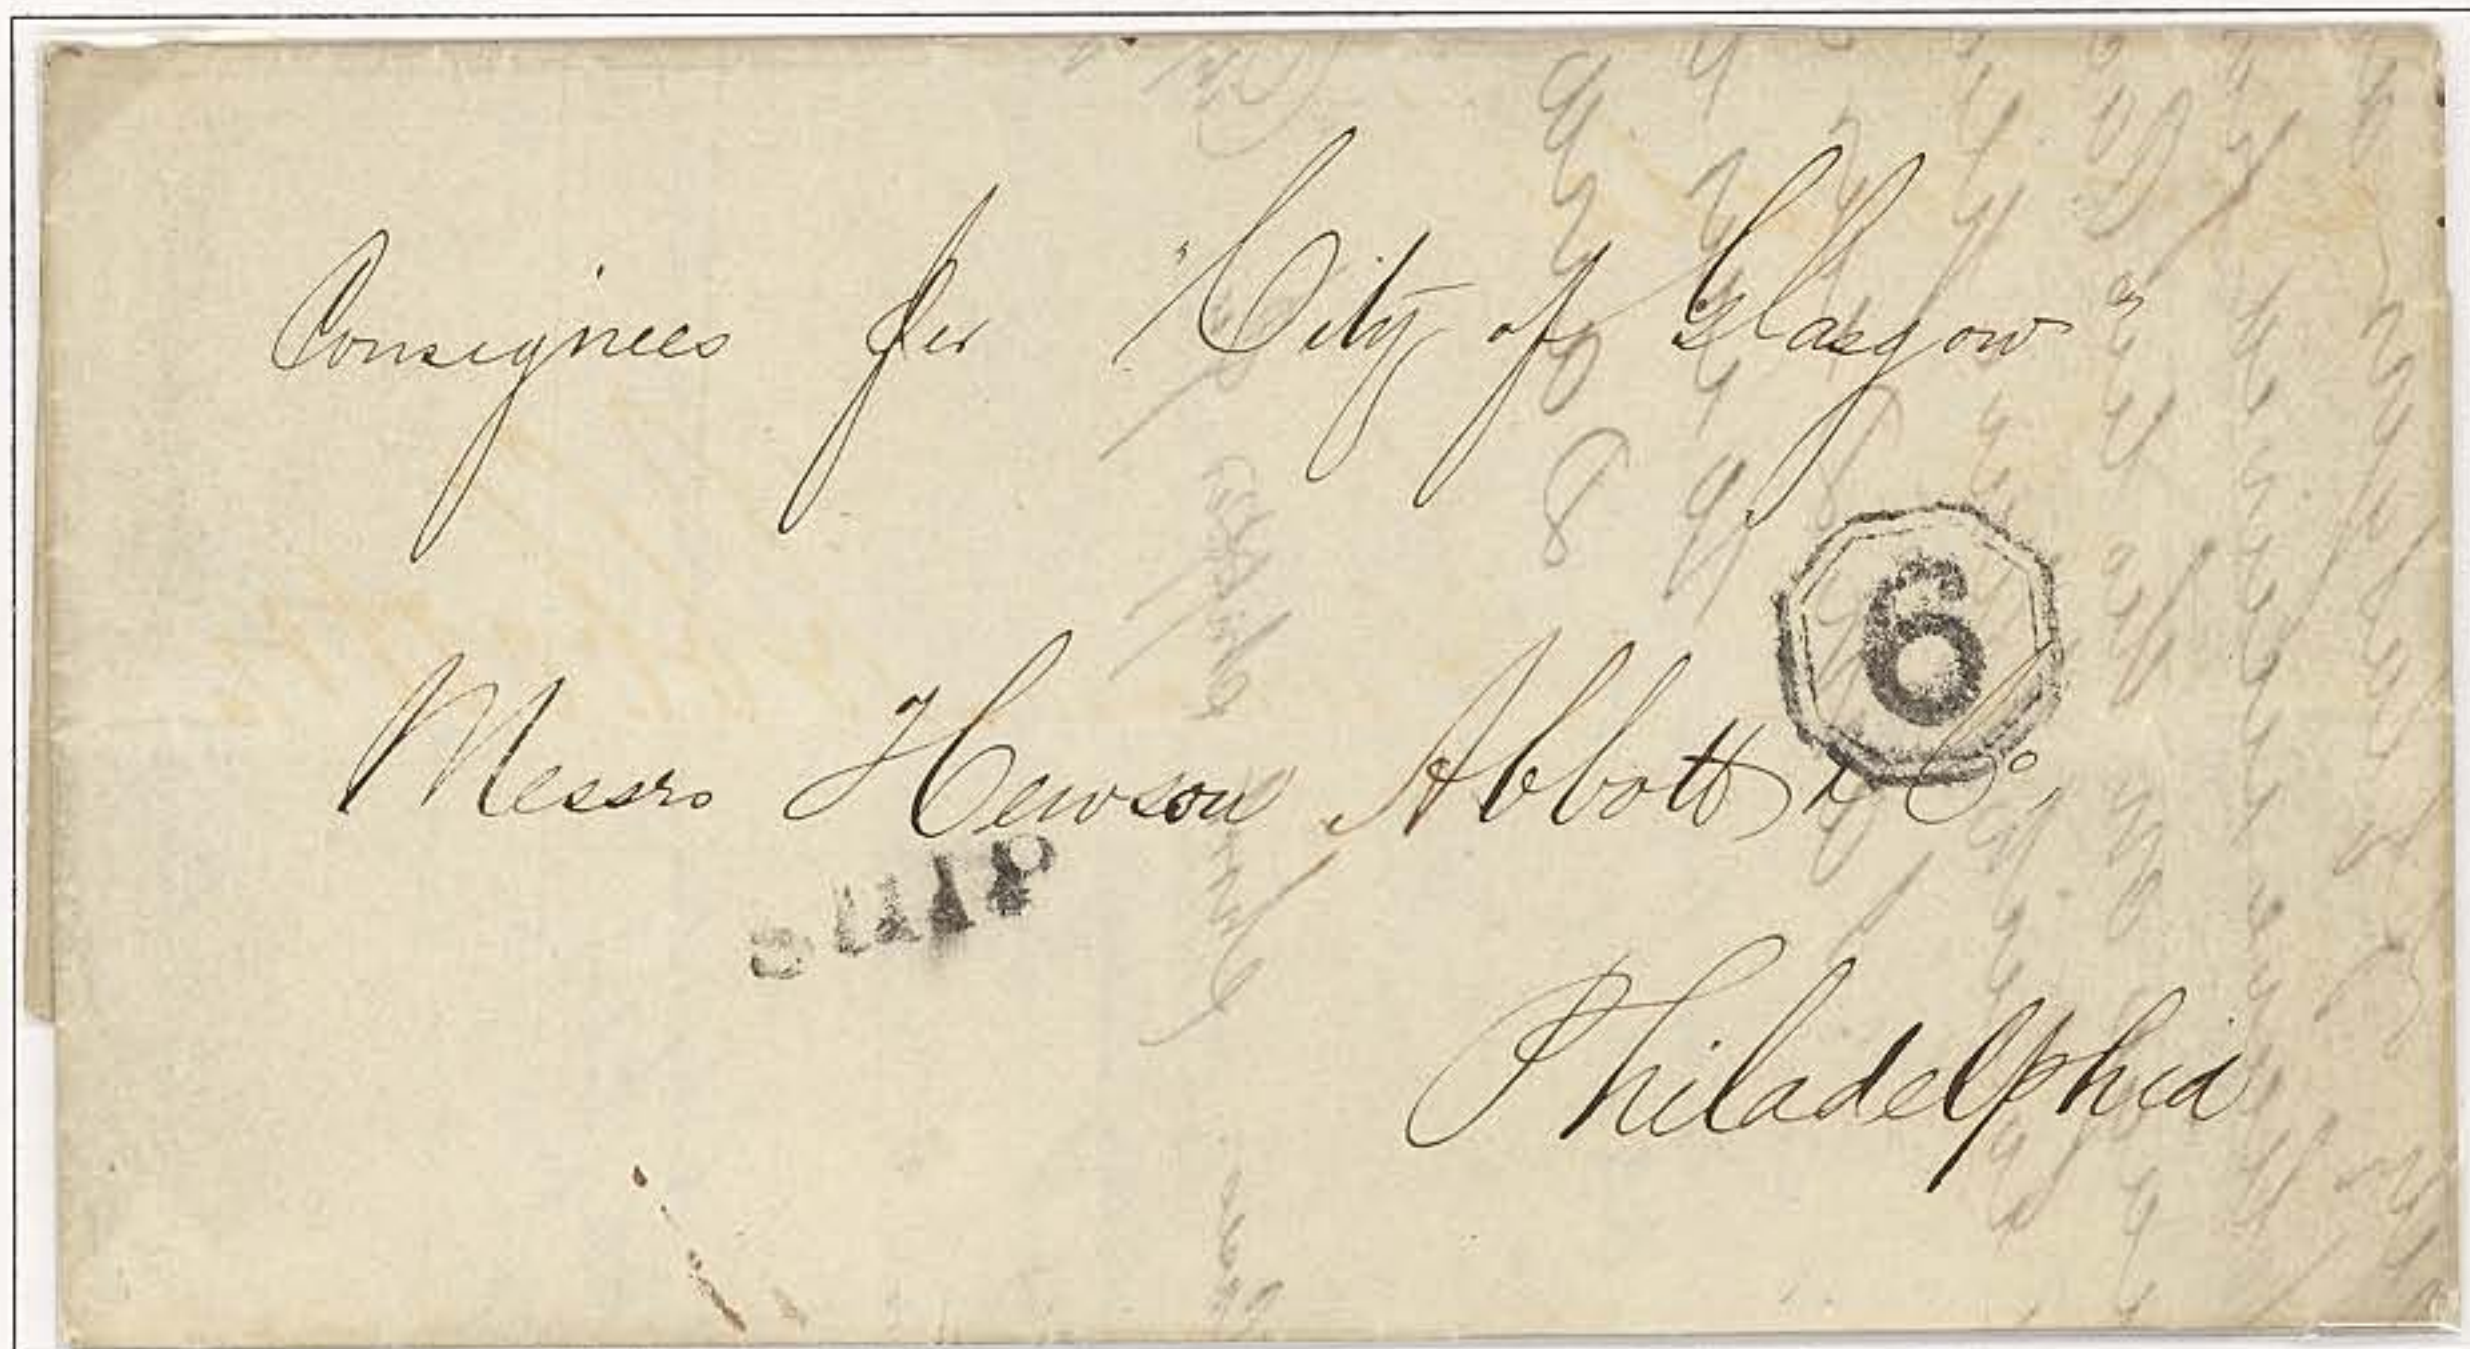 Consignees per "City of Glasgow"
6
Messrs Hewson Abbott & Co,
SHIP
Philadelphia